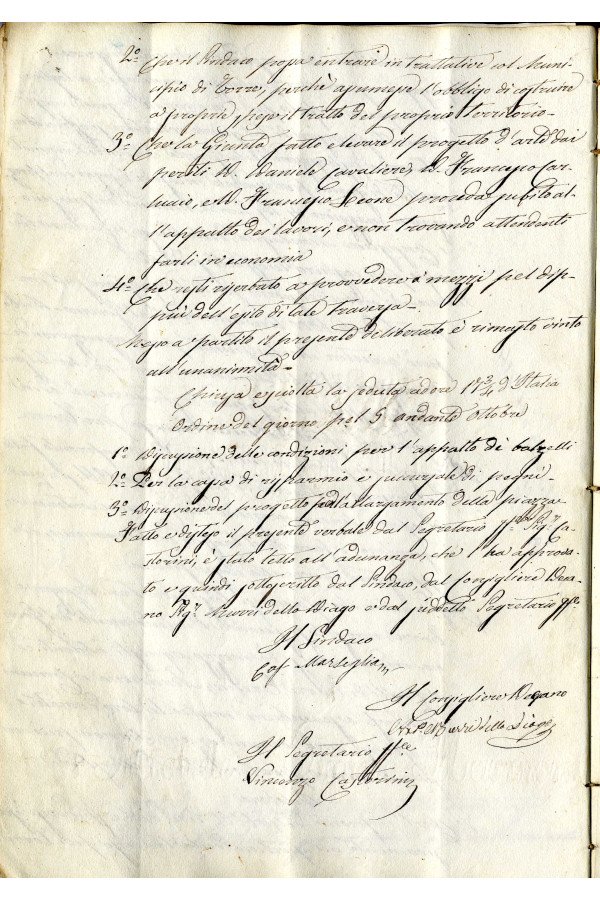 2º Che il Sindaco possa entrare in trattative col Muni-
cipio di Torre, perchè assumesse l'obbligo di costruire
a proprie spese il tratto del proprio territorio-
3º Che la Giunta fatto elevare il progetto d'arte dai
periti D. Daniele Cavaliere, D. Francesco Car-
, e D. Francesco Leone proceda subito al-
l'appalto dei lavori, e non trovando attendenti
farli in economia
4º Che resti riserbato a provvedere a' mezzi pel disp-
più dell'esito di tale traversa-
Messo a partito il presente deliberato è rimasto vinto
all'unanimità-
Chiusa e sciolta la seduta ad ore 17 3/4 d'Italia
Ordine del giorno pel 5 andante Ottobre
1º Discussione delle condizioni per l'appalto de'
2º Per la cassa di risparmio e succursale di pegni-
3º Discussione del progetto sull'allargamento della piazza-
Fatto e disteso il presente verbale dal Segretario ff. Sigr. Ca-
storini, è stato letto all'adunanza, che l'ha approva-
to e quindi sottoscritto dal Sindaco, dal Consigliere Deca-
no Sigr. Murri dello Diago e dal suddetto Segretario ff.
Il Sindaco
Cosº Marseglia
Il Consigliere Decano
Murri dello Diago
Il Segretario ff.
Vincenzo Castorini